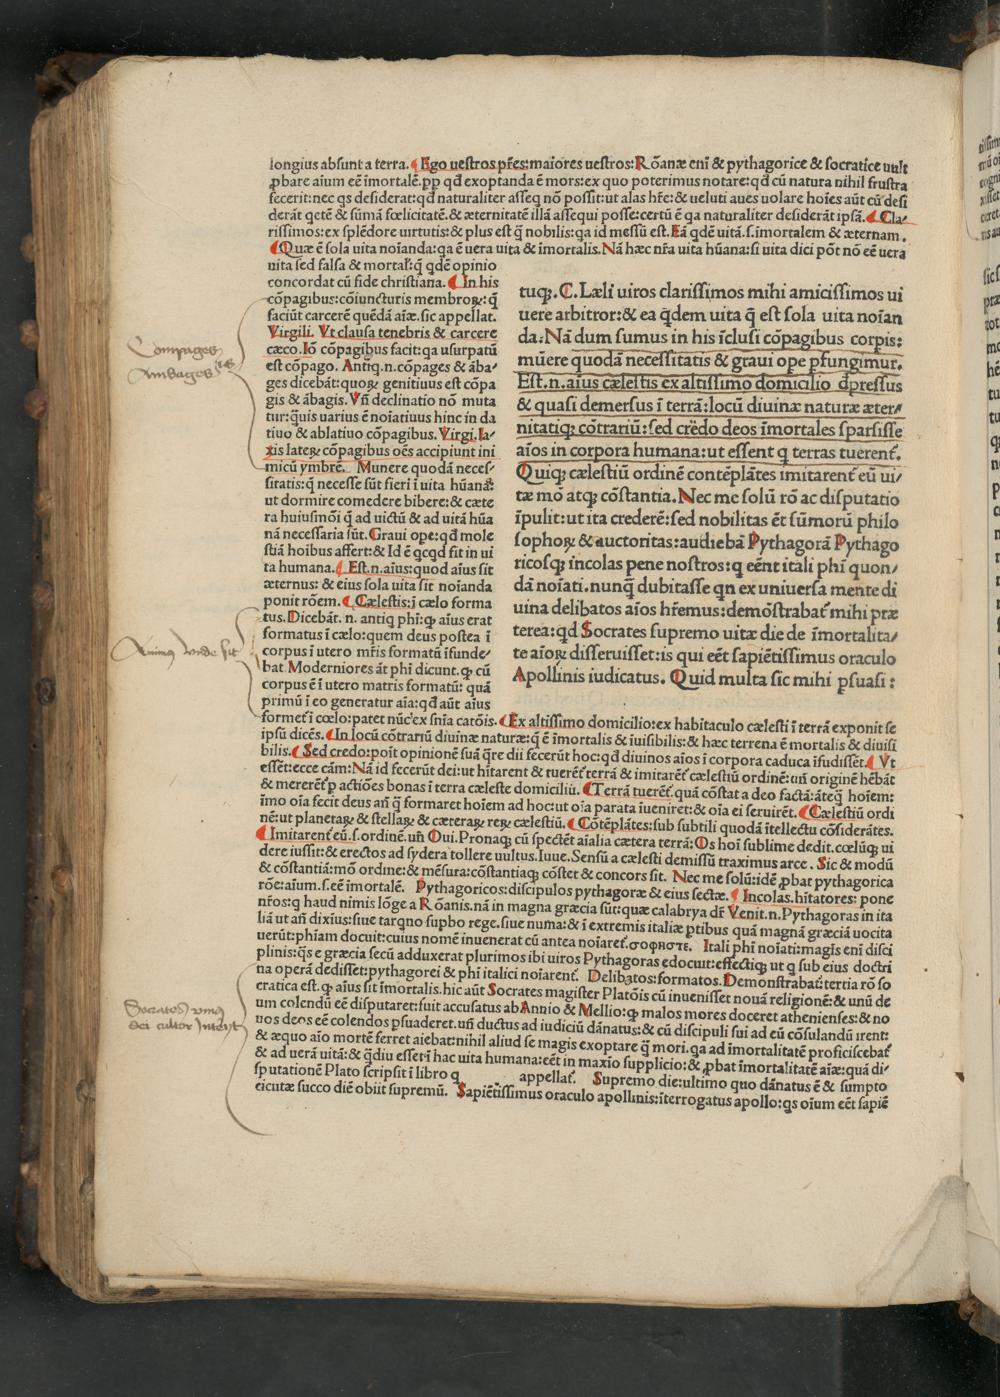 longius absunt a terra. Ego uestros p̃res: maiores uestros: Rõanæ enĩ & pythagorice & socratice uult
ꝓbare aĩum eẽ ĩmortalẽ. pp qđ exoptanda ẽ mors: ex quo poterimus notare: qđ cũ natura nihil frustra
fecerit: nec qs desiderat: qđ naturaliter asseq nõ possit: ut alas hr̃e: & ueluti aues uolare hoĩes aũt cũ desi
derãt qetẽ & sũmã fœlicitatẽ. & æternitatẽ illã assequi posse: certũ ẽ qa naturaliter desiderãt ipsã. Cla⸗
rissimos: ex splẽdore uirtutis: & plus est q̃ nobilis: qa id messũ est. Eã qdẽ uitã. s. ĩmortalem & æternam.
Quæ ẽ sola uita noĩanda: qa ẽ uera uita & ĩmortalis. Nã hæc nr̃a uita hũana: si uita dici põt nõ eẽ uera
uita sed falsa & mortal': q̃ qdẽ opinio
concordat cũ fide christiana. In his
cõpagibus: cõiuncturis membroꝝ: q̃
faciũt carcerẽ quẽdã aĩæ. sic appellat.
Virgili. Vt clausa tenebris & carcere
cæco. Iõ cõpagibus facit: qa usurpatũ
est cõpago. Antiq. n. cõpages & ãba⸗
ges dicebãt: quoꝝ genitiuus est cõpa
gis & ãbagis. Vñ declinatio nõ muta
tur: q̃uis uarius ẽ noĩatiuus hinc in da
tiuo & ablatiuo cõpagibus. Virgi. la⸗
xis lateꝝ cõpagibus oẽs accipiunt ini
micũ ymbrẽ. Munere quodã neces⸗
sitatis: q̃ necesse sũt fieri ĩ uita hũana:
ut dormire comedere bibere: & cæte
ra huiusmõi q̃ ad uictũ & ad uitã hũa
nã necessaria sũt. Graui ope: qđ mole
stiã hoibus affert: & Id ẽ qcqđ fit in ui
ta humana. Est. n. aĩus: quod aĩus sit
æternus: & eius sola uita sit noĩanda
ponit rõem. Cælestis: ĩ cælo forma
tus. Dicebãt. n. antiq phĩ: ꝙ aĩus erat
formatus ĩ cælo: quem deus postea ĩ
corpus ĩ utero mr̃is formatũ ĩfunde⸗
bat. Moderniores ãt phĩ dicunt. ꝙ cũ
corpus ẽ ĩ utero matris formatũ: quã
primũ ĩ eo generatur aĩa: qđ aũt aĩus
formet' ĩ cœlo: patet nũc ex sñia catõis. Ex altissimo domicilio: ex habitaculo cælesti ĩ terrã exponit se
ipsũ dicẽs. In locũ cõtrariũ diuinæ naturæ: q̃ ẽ ĩmortalis & ĩuisibilis: & hæc terrena ẽ mortalis & diuisi
bilis. Sed credo: poĩt opinionẽ suã q̃re dii fecerũt hoc: qđ diuinos aĩos ĩ corpora caduca ĩfudisset. Vt
essẽt: ecce cãm: Nã id fecerũt dei: ut hĩtarent & tuerẽt' terrã & imitarẽt' cælestiũ ordinẽ: uñ originẽ hẽbãt
& mererẽt' p actiões bonas ĩ terra cæleste domiciliũ. Terrã tuerẽt'. quã cõstat a deo factã: ãteq̃ hoĩem:
ĩmo oĩa fecit deus añ q̃ formaret hoĩem ad hoc: ut oĩa parata ĩueniret: & oĩa ei seruirẽt. Cælestiũ ordi
nẽ: ut planetaꝝ & stellaꝝ & cæteraꝝ reꝝ cælestiũ. Cõtẽplãtes: sub subtili quodã ĩtellectu cõsiderãtes.
Imitarent' eũ. s. ordinẽ. uñ Oui. Pronaqꝫ cũ spectẽt aĩalia cætera terrã: Os hoĩ sublime dedit. cœlũqꝫ ui
dere iussit: & erectos ad sydera tollere uultus. Iuue. Sensũ a cælesti demissũ traximus arce. Sic & modũ
& cõstantiã: mõ ordine: & mẽsura: cõstantiaqꝫ cõstet & concors sit. Nec me solũ: idẽ ꝓbat pythagorica
rõe: aĩum. s. eẽ ĩmortalẽ. Pythagoricos: discipulos pythagoræ & eius sectæ. Incolas. hĩtatores: pone
nr̃os: q haud nimis lõge a Rõanis. nã in magna græcia sũt: quæ calabrya dr̃. Venit. n. Pythagoras in ita
liã ut añ diximus: siue tarqno supbo rege. siue numa: & ĩ extremis italiæ ptibus quã magnã græciã uocita
uerũt: phĩam docuit: cuius nomẽ inuenerat cũ antea noĩaret'. σοφηστε. Itali phĩ noĩati: magis enĩ disci
plinis: q̃s e græcia secũ adduxerat plurimos ibi uiros Pythagoras edocuit: effectiqꝫ ut q sub eius doctri
na operã dedisset: pythagorei & phĩ italici noĩarent'. Delibatos: formatos. Demonstrabat: tertia rõ so
cratica est. ꝙ aĩus sit ĩmortalis. hic aũt Socrates magister Platõis cũ inuenisset nouã religionẽ: & unũ de
um colendũ eẽ disputaret: fuit accusatus ab Annio & Mellio: ꝙ malos mores doceret athenienses: & no
uos deos eẽ colendos psuaderet. uñ ductus ad iudiciũ dãnatus: & cũ discipuli sui ad eũ cõsulandũ irent:
& æquo aĩo mortẽ ferret aiebat: nihil aliud se magis exoptare q̃ mori. qa ad ĩmortalitatẽ proficiscebat'
& ad uerã uitã: & q̃diu esset ĩ hac uita humana: eẽt in maxĩo supplicio: & ꝓbat ĩmortalitatẽ aĩæ: quã di⸗
sputationẽ Plato scripsit ĩ libro q appellat'. Supremo die: ultimo quo dãnatus ẽ & sumpto
cicutæ succo diẽ obiit supremũ. Sapiẽtissimus oraculo apollinis: ĩterrogatus apollo: qs oĩum eẽt sapiẽ
tuqꝫ. C. Læli uiros clarissimos mihi amicissimos ui
uere arbitror: & ea q̃dem uita q̃ est sola uita noĩan
da: Nã dum sumus in his ĩclusi cõpagibus corpis:
mũere quodã necessitatis & graui ope pfungimur.
Est. n. aĩus cælestis ex altissimo domicilio dp̃ressus
& quasi demersus ĩ terrã: locũ diuinæ naturæ æter⸗
nitatiqꝫ cõtrariũ: sed crẽdo deos ĩmortales sparsisse
aĩos in corpora humana: ut essent q terras tuerent'.
Quiqꝫ cælestiũ ordinẽ contẽplãtes imitarent' eũ ui⸗
tæ mõ atqꝫ cõstantia. Nec me solũ rõ ac disputatio
ĩpulit: ut ita crederẽ: sed nobilitas ẽt sũmorũ philo
sophoꝝ & auctoritas: audiebã Pythagorã Pythago
ricosqꝫ incolas pene nostros: q eẽnt itali phĩ quon⸗
dã noĩati. nunq̃ dubitasse qn ex uniuersa mente di
uina delibatos aĩos hr̃emus: demõstrabat' mihi præ
terea: qđ Socrates supremo uitæ die de ĩmortalita⸗
te aĩoꝝ disseruisset: is qui eẽt sapiẽtissimus oraculo
Apollinis iudicatus. Quid multa sic mihi psuasi:
Compages
Ambages
Animus unde sit
Socrates unius
dei cultor interijt